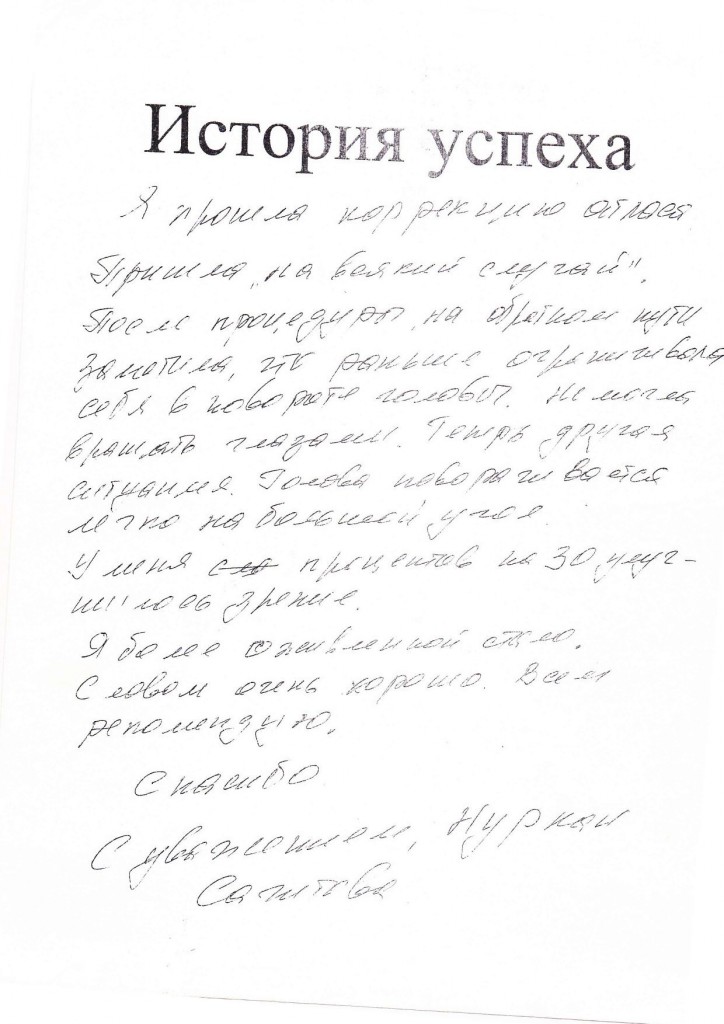 История успеха
Я прошла коррекцию атласа
Пришла „на всякий случай".
После процедуры, на обратном пути
заметила, что раньше ограничивала
себя в повороте головы. Не могла
вращать глазами. Теперь другая
ситуация. Голова поворачивается
легко на больший угол.
У меня процентов на 30 улуч-
шилось зрение.
Я более оживленной стала.
Словом очень хорошо. Всем
рекомендую.
Спасибо
С уважением, Нуркан
Сагитова